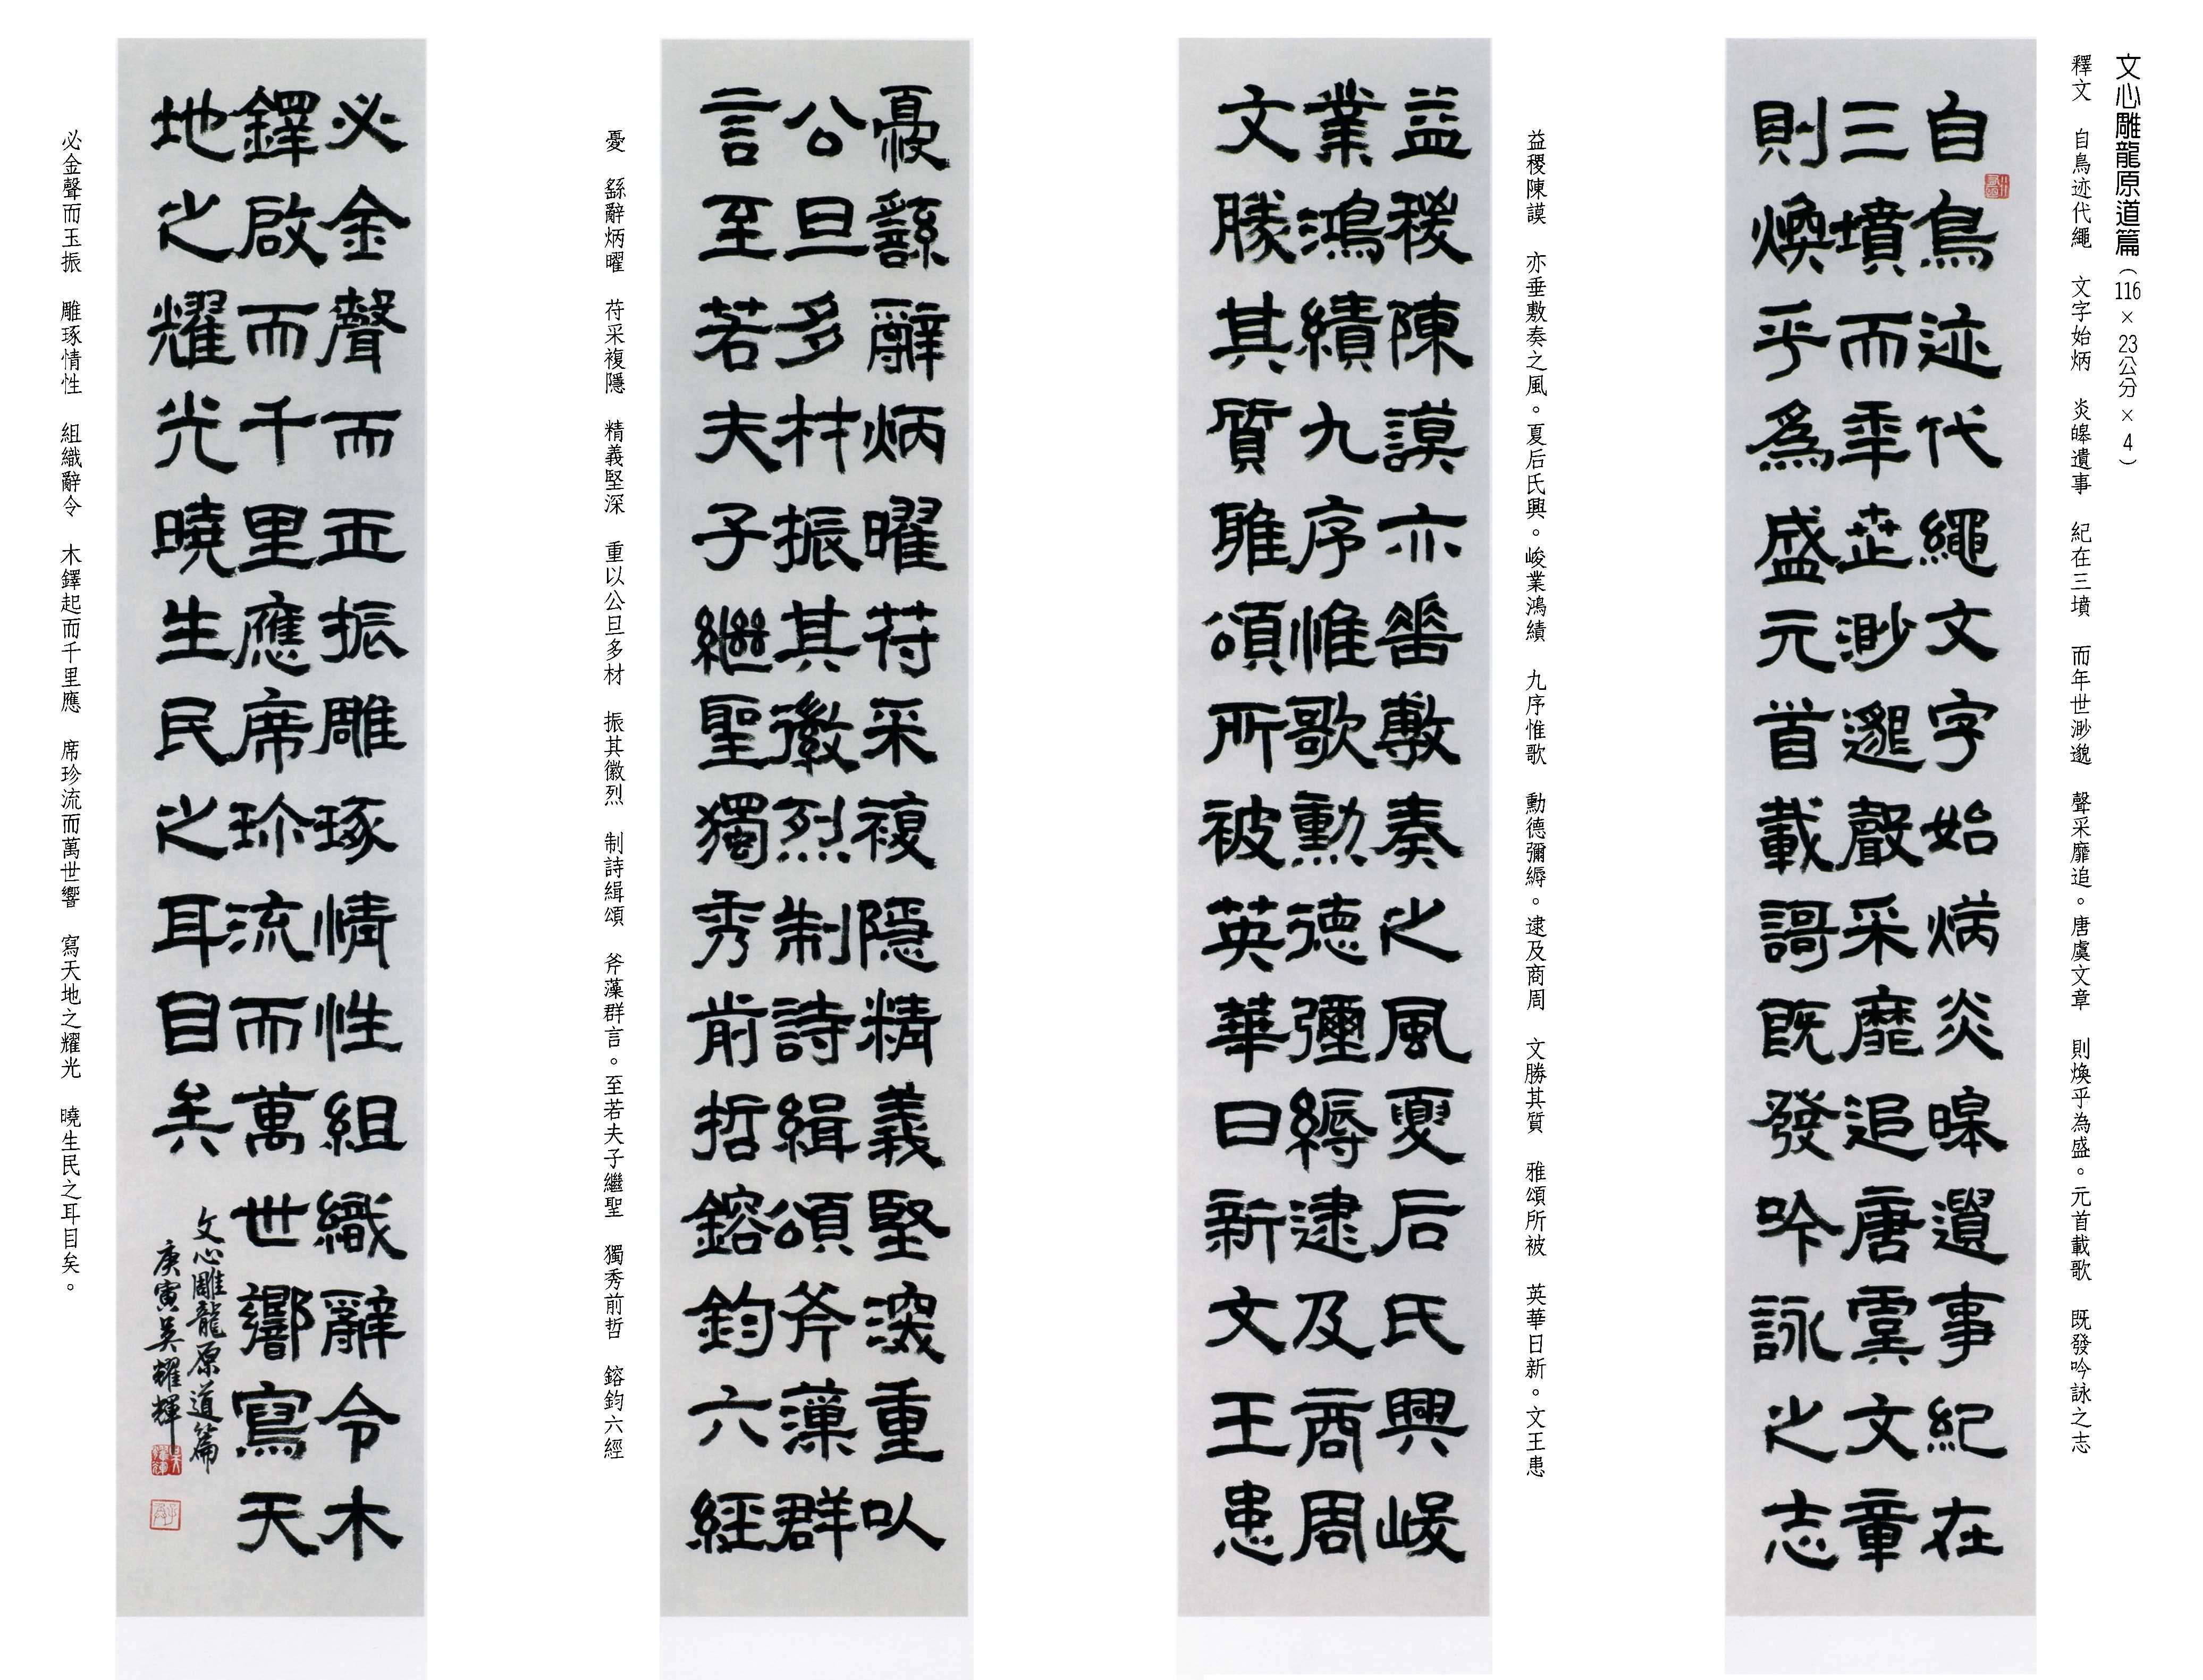 文心雕龍原道篇（116×23公分×4）
釋文　自鳥迹代繩　文字始炳　炎皞遺事　紀在三墳　而年世渺邈　聲采靡追。唐虞文章　則煥乎為盛。元首載歌　既發吟詠之志
自鳥迹代繩文字始炳炎皞遺事紀在
三墳而秊世渺邈聲采靡追唐虞文章
則煥乎爲盛元首載謌既發吟詠之志
益稷陳謨　亦垂敷奏之風。夏后氏興。峻業鴻績　九序惟歌　勳德彌縟。逮及商周　文勝其質　雅頌所被　英華日新。文王患
益稷陳謨亦垂敷奏之風夏后氏興峻
業鴻績九序惟歌勳德彌縟逮及商周
文勝其質雅頌所被英華日新文王患
憂繇辭炳曜符采複隱精義堅深重以
公旦多材振其徽烈制詩緝頌斧藻群
言至若夫子繼聖獨秀前哲鎔鈞六經
憂　繇辭炳曜　符采複隱　精義堅深　重以公旦多材　振其徽烈　制詩緝頌　斧藻群言。至若夫子繼聖　獨秀前哲　鎔鈞六經
必金聲而玉振雕琢情性組織辭令木
鐸啟而千里應席珍流而萬世響寫天
地之耀光曉生民之耳目矣
文心雕龍原道篇
庚寅吳耀輝
必金聲而玉振　雕琢情性　組織辭令　木鐸起而千里應　席珍流而萬世響　寫天地之耀光　曉生民之耳目矣。